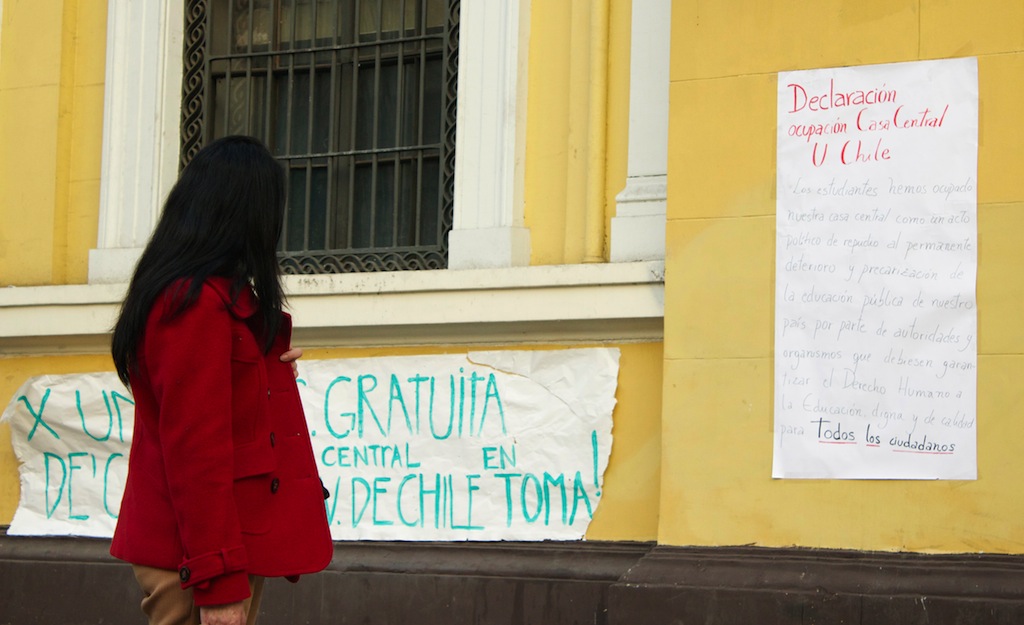 Declaración
ocupación Casa Central
U Chile
Los estudiantes hemos ocupado
nuestra casa central como un acto
político de repudio al permanente
deterioro y precarización de
la educación pública de nuestro
país por parte de autoridades y
organismos que debiesen garan-
tizar el Derecho Humano a
la Educación, digna, y de calidad
para Todos los ciudadanos
X UN GRATUITA
CENTRAL EN
DE CHILE TOMA!